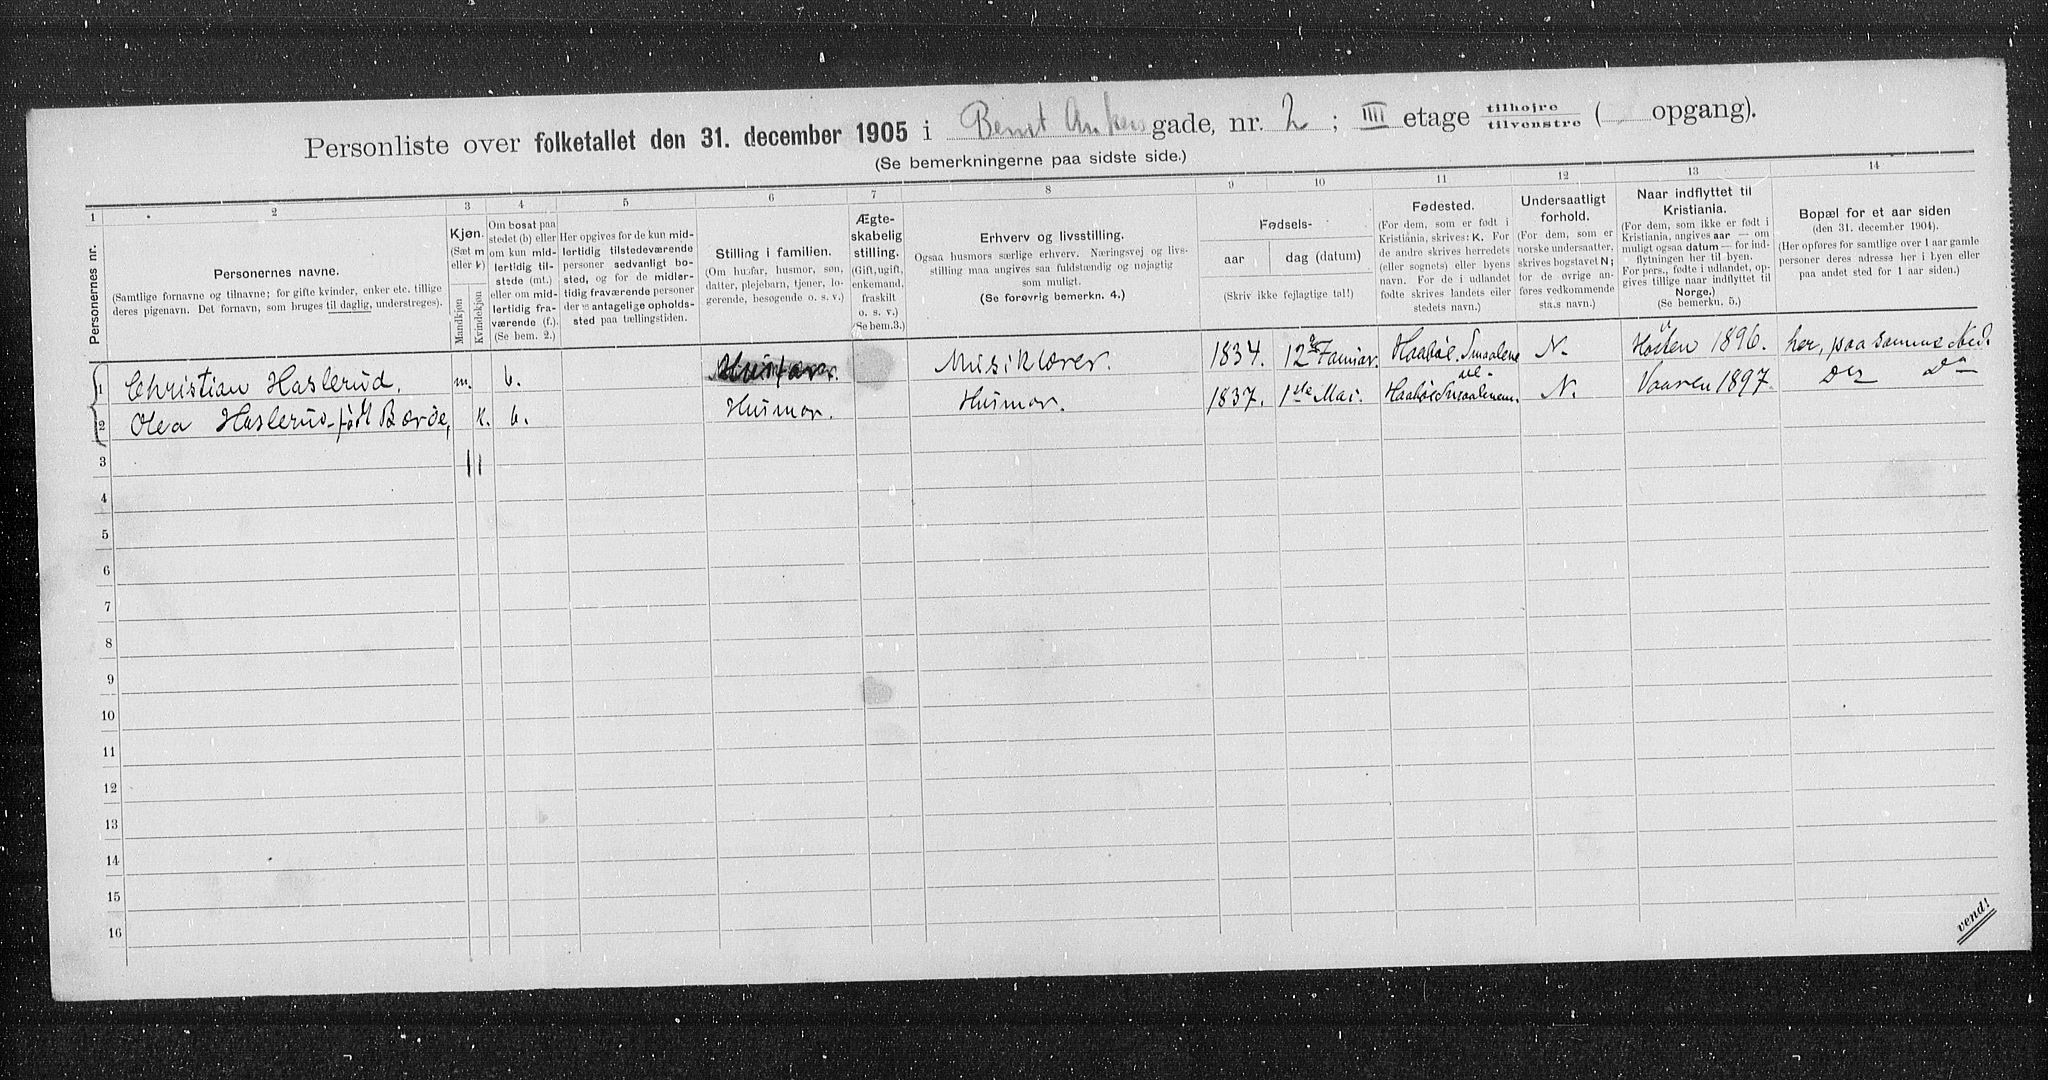 Personliste over folketallet den 31. december 1905 i Bernt Ankers gade, nr. 2 ; III etage tilhøire / tilvenstre ( opgang).
(Se bemerkningerne paa sidste side.)
1 2 3 4 5 6 7 8 9 10 11 12 13 14
Personernes nr.
Personernes navne.
(Samtlige fornavne og tilnavne; for gifte kvinder, enker etc. tillige
deres pigenavn. Det fornavn, som bruges til daglig, understreges).
Kjøn.
(Sæt m
eller k)
Mandkjøn
Kvindekjøn
Om bosat paa
stedet (b) eller
om kun mid-
lertidig til-
stede (mt.)
eller om mid-
lertidig fra-
værende (f.).
(Se bem. 2.)
Her opgives for de kun mid-
lertidig tilstedeværende
personer sedvanligt bo-
sted, og for de midler-
tidig fraværende personer
deres antagelige opholds-
sted paa tællingstiden.
Stilling i familien.
(Om husfar, husmor, søn,
datter, plejebarn, tjener, lo-
gerende, besøgende o. s. v.)
Ægte-
skabelig
stilling.
(Gift, ugift,
enkemand,
fraskilt
o. s. v.)
(Se bem.3.)
Erhverv og livsstilling.
Ogsaa husmors særlige erhverv. Næringsvej og livs-
stilling maa angives saa fuldstændig og nøjagtig
som muligt.
(Se forøvrig bemerkn. 4.)
Fødsels-
aar
dag (datum)
(Skriv ikke fejlagtige tal!)
Fødested.
(For dem, som er født i
Kristiania, skrives: K. For
de andre skrives herredets
(eller sognets) eller byens
navn. For de i udlandet
fødte skrives landets eller
stedets navn.)
Undersaatligt
forhold.
(For dem, som er
norske undersaatter,
skrives bogstavet N;
for de øvrige an-
føres vedkommende
stats navn.)
Naar indflyttet til
Kristiania.
(For dem, som ikke er født i
Kristiania, angives aar — om
muligt ogsaa datum — for ind-
flytningen her til byen.
For pers., fødte i udlandet, op-
gives tillige naar indflyttet til
Norge.)
(Se bemerkn. 5.)
Bopæl for et aar siden
(den 31. december 1904).
(Her opføres for samtlige over 1 aar gamle
personer deres adresse her i byen eller
paa andet sted for 1 aar siden.)
1 Christian Haslerud. m. b. Husfar. Musiklærer. 1834. 12 Januar. Haabøl. Smaalene N. Hösten 1896. her, paa samme Sted.
2 Olea Haslerud født Barøe, k. b. Husmor. Husmor. 1837. 1ste Mai. Haabøl Smaalenene. N. Vaaren 1897
3
4
5
6
7
8
9
10
11
12
13
14
15
16
vend!